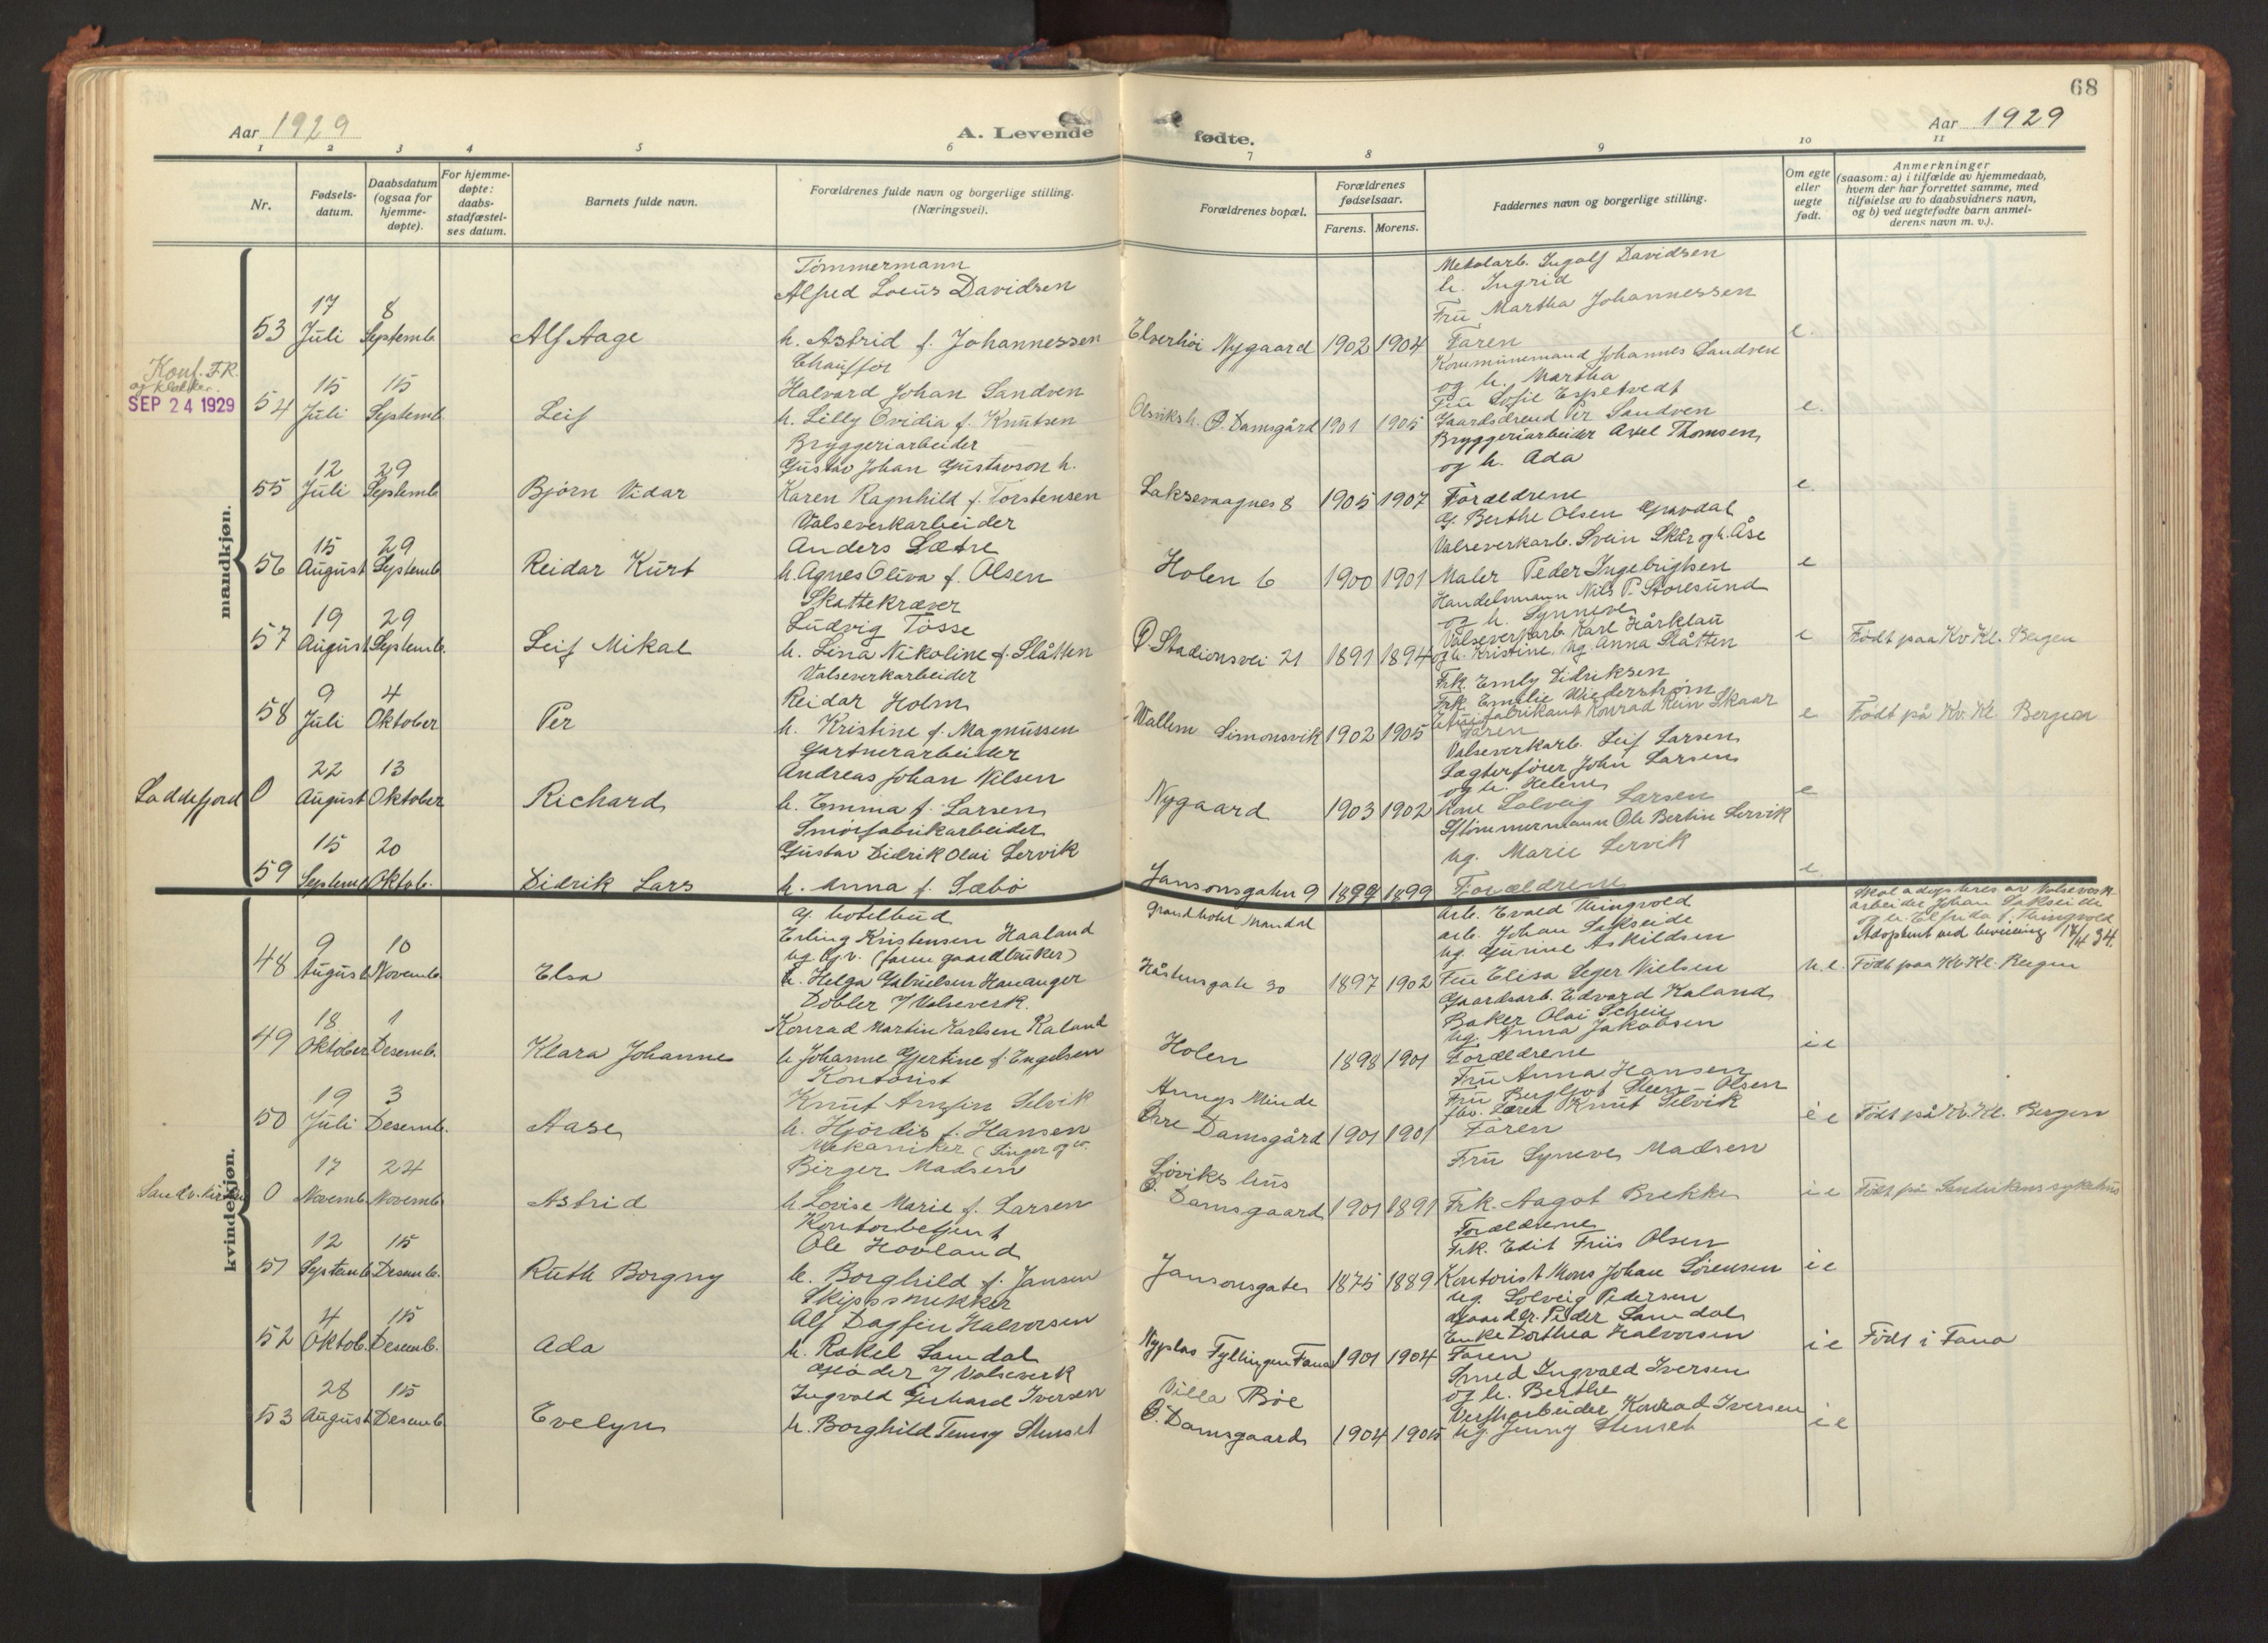 68
Aar 1929
A. Levende fødte.
Aar 1929
1 2 3 4 5 6 7 8 9 10 11
Nr.
Fødsels-
datum.
Daabsdatum
(ogsaa for
hjemme-
døpte).
For hjemme-
døpte:
daabs-
stadfæstel-
ses datum.
Barnets fulde navn.
Forældrenes fulde navn og borgerlige stilling.
(Næringsvei).
Forældrenes bopæl.
Forældrenes
fødselsaar.
Farens. Morens.
Faddernes navn og borgerlige stilling.
Om egte
eller
uegte
født.
Anmerkninger
(saasom: a) i tilfælde av hjemmedaab,
hvem der har forrettet samme, med
tilføielse av to daabsvidners navn,
og b) ved uegtefødte barn anmel-
derens navn m. v.).
mandkjøn.
53
17
Juli
8
Septemb.
Alf Aage
Tømmermann
Alfred Davidsen
h. Astrid f. Johannessen
Elverhøi Nygaard
1902 1904
Metalarb. Ingolf Davidsen
h. Ingrid
Fru Martha Johannessen
Faren
e.
Konf. F.R.
og klokker.
SEP 24 1929
54
15
Juli
15
Septemb
Leif
Chauffør
Halvard Johan Sandven
h. Lilly Ovidia f. Knutsen
Ø. Damsgård
1901 1905
Kommunemand Johannes Sandven
og h. Martha
Fru Sofie Espetvedt
Gaardsdreng Per Sandven
e.
55
12
Juli
29
Septemb
Bjørn Vidar
Bryggeriarbeider
Gustav Johan Gustavson h.
Karen Ragnhild f. Torstensen
Laksevaagnes 8
1905 1907
Bryggeriarbeider Axel Thomsen
og h. Ada
Forældrene
e.
56
15
August
29
Septemb
Reidar Kurt
Valseverkarbeider
Anders Sætre
h. Agnes Oliva f. Olsen
Holen 6
1900 1901
G. Berthe Olsen Gravdal
Valseverkarb. Svein Skår og h. Åse
Maler Peder Ingebrigtsen
e
57
19
August
29
Septemb.
Leif Mikal
Skattekræver
Ludvig Tøsse
h. Lina Nikoline f. Slåtten
Ø. Stadionsvei 21
1891 1894
Handelsmann Nils P. Storesund
og h. Synneve
Valseverkarb. Karl Hårklau
og h. Kristine. Ug. Anna Slåtten
e
Født paa Kv. Kl. Bergen
58
9
Juli
4
Oktober
Per
Valseverkarbeider
Reidar Holm
h. Kristine f. Magnussen
Wallem Simonsvik
1902 1905
Frk. Emly Didriksen
Frk. Emilie Wiederstrøm
Konrad Rein Skaar
Faren
e
Født på Kv. Kl. Bergen
Laddefjord
0
22
August
13
Oktober
Richard
Gartnerarbeider
Andreas Johan Nilsen
h. Emma f. Larsen
Nygaard
1903 1902
Valseverkarb. Leif Larsen
Lægterfører John Larsen
og h. Helene
Kone Solveig Larsen
e
59
15
Septemb
20
Oktob.
Didrik Lars
Smørfabrikarbeider
Gustav Didrik Olai Lervik
h. Anna f. Sæbø
Jansonsgaten 9
1899 1899
Ole Bertin Lervik
ug. Marie Lervik
Forældrene
e.
kvindekjøn.
48
9
August
10
Novemb.
Elsa
G. hotelbud
Erling Kristensen Haaland
ug. Gv. (faren gaardbruker)
h. Helga Gabrielsen Hananger
Grand hotel Mandal
30
1897 1902
Arb. Evald Thingvold
arb. Johan Lakseide
ug. Gurine Askildsen
Fru Elisa Seger Nielsen
u.e.
Skal adopteres av Valseverk-
arbeider Johan Lakseide
og h. Elfrida f. Thingvold
Adoptert ved bevilling 17/4 34.
Født paa Kv. Kl. Bergen
49
18
Oktober
1
Desemb.
Klara Johanne
Dobler / Valseverk.
Konrad Martin Karlsen Kaland
h. Johanne Gjertine f. Engelsen
Holen
1898 1901
Gaardsarb. Edvard Kaland
Baker Olai Scheie
ug. Anna Jakobsen
Forældrene
i e
50
19
Juli
3
Desemb.
Aase
Kontorist
Knut Arnfin Selvik
h. Hjørdis f. Hansen
Minde
Øvre Damsgård
1901 1901
Fru Anna Hansen
Fru Bergljot Steen-Olsen
fhv. Lærer Knut Selvik
Faren
i e
Født på Kv. Kl. Bergen
Sandv. kirke
0
17
Novemb.
24
Novemb.
Astrid
Mekaniker (Singer og co.
Birger Madsen
h. Lovise Marie f. Larsen
Sjøviks hus
Ø. Damsgaard
1901 1891
Fru Synneve Madsen
Frk. Aagot Brekke
Forældrene
i e
Født på Sandvikens sykehus
51
12
Septemb
15
Desemb.
Ruth Borgny
Kontorbetjent
Ole Hovland
h. Borghild f. Jansen
Jansonsgaten
1875 1889
Frk. Edit Friis Olsen
Kontorist Mons Johan Sørensen
ug. Solveig Pedersen
i e
52
4
Oktob.
15
Desemb.
Ada
Skipssnekker
Alf Dagfin Halvorsen
h. Rakel Samdal
Nyplas Fyllingen Fana
1901 1904
Gaardbr. Peder Samdal
Enke Dorthea Halvorsen
Faren
i e
Født i Fana
53
28
August
15
Desemb
Evelyn
Gløder / Valseverk
Ingvald Gerhard Iversen
h. Borghild Jenny Stenset
Villa Bøe
Ø. Damsgaard
1904 1905
Smed Ingvald Iversen
og h. Berthe
Verftsarbeider Konrad Iversen
ug. Jenny Stenset
i e